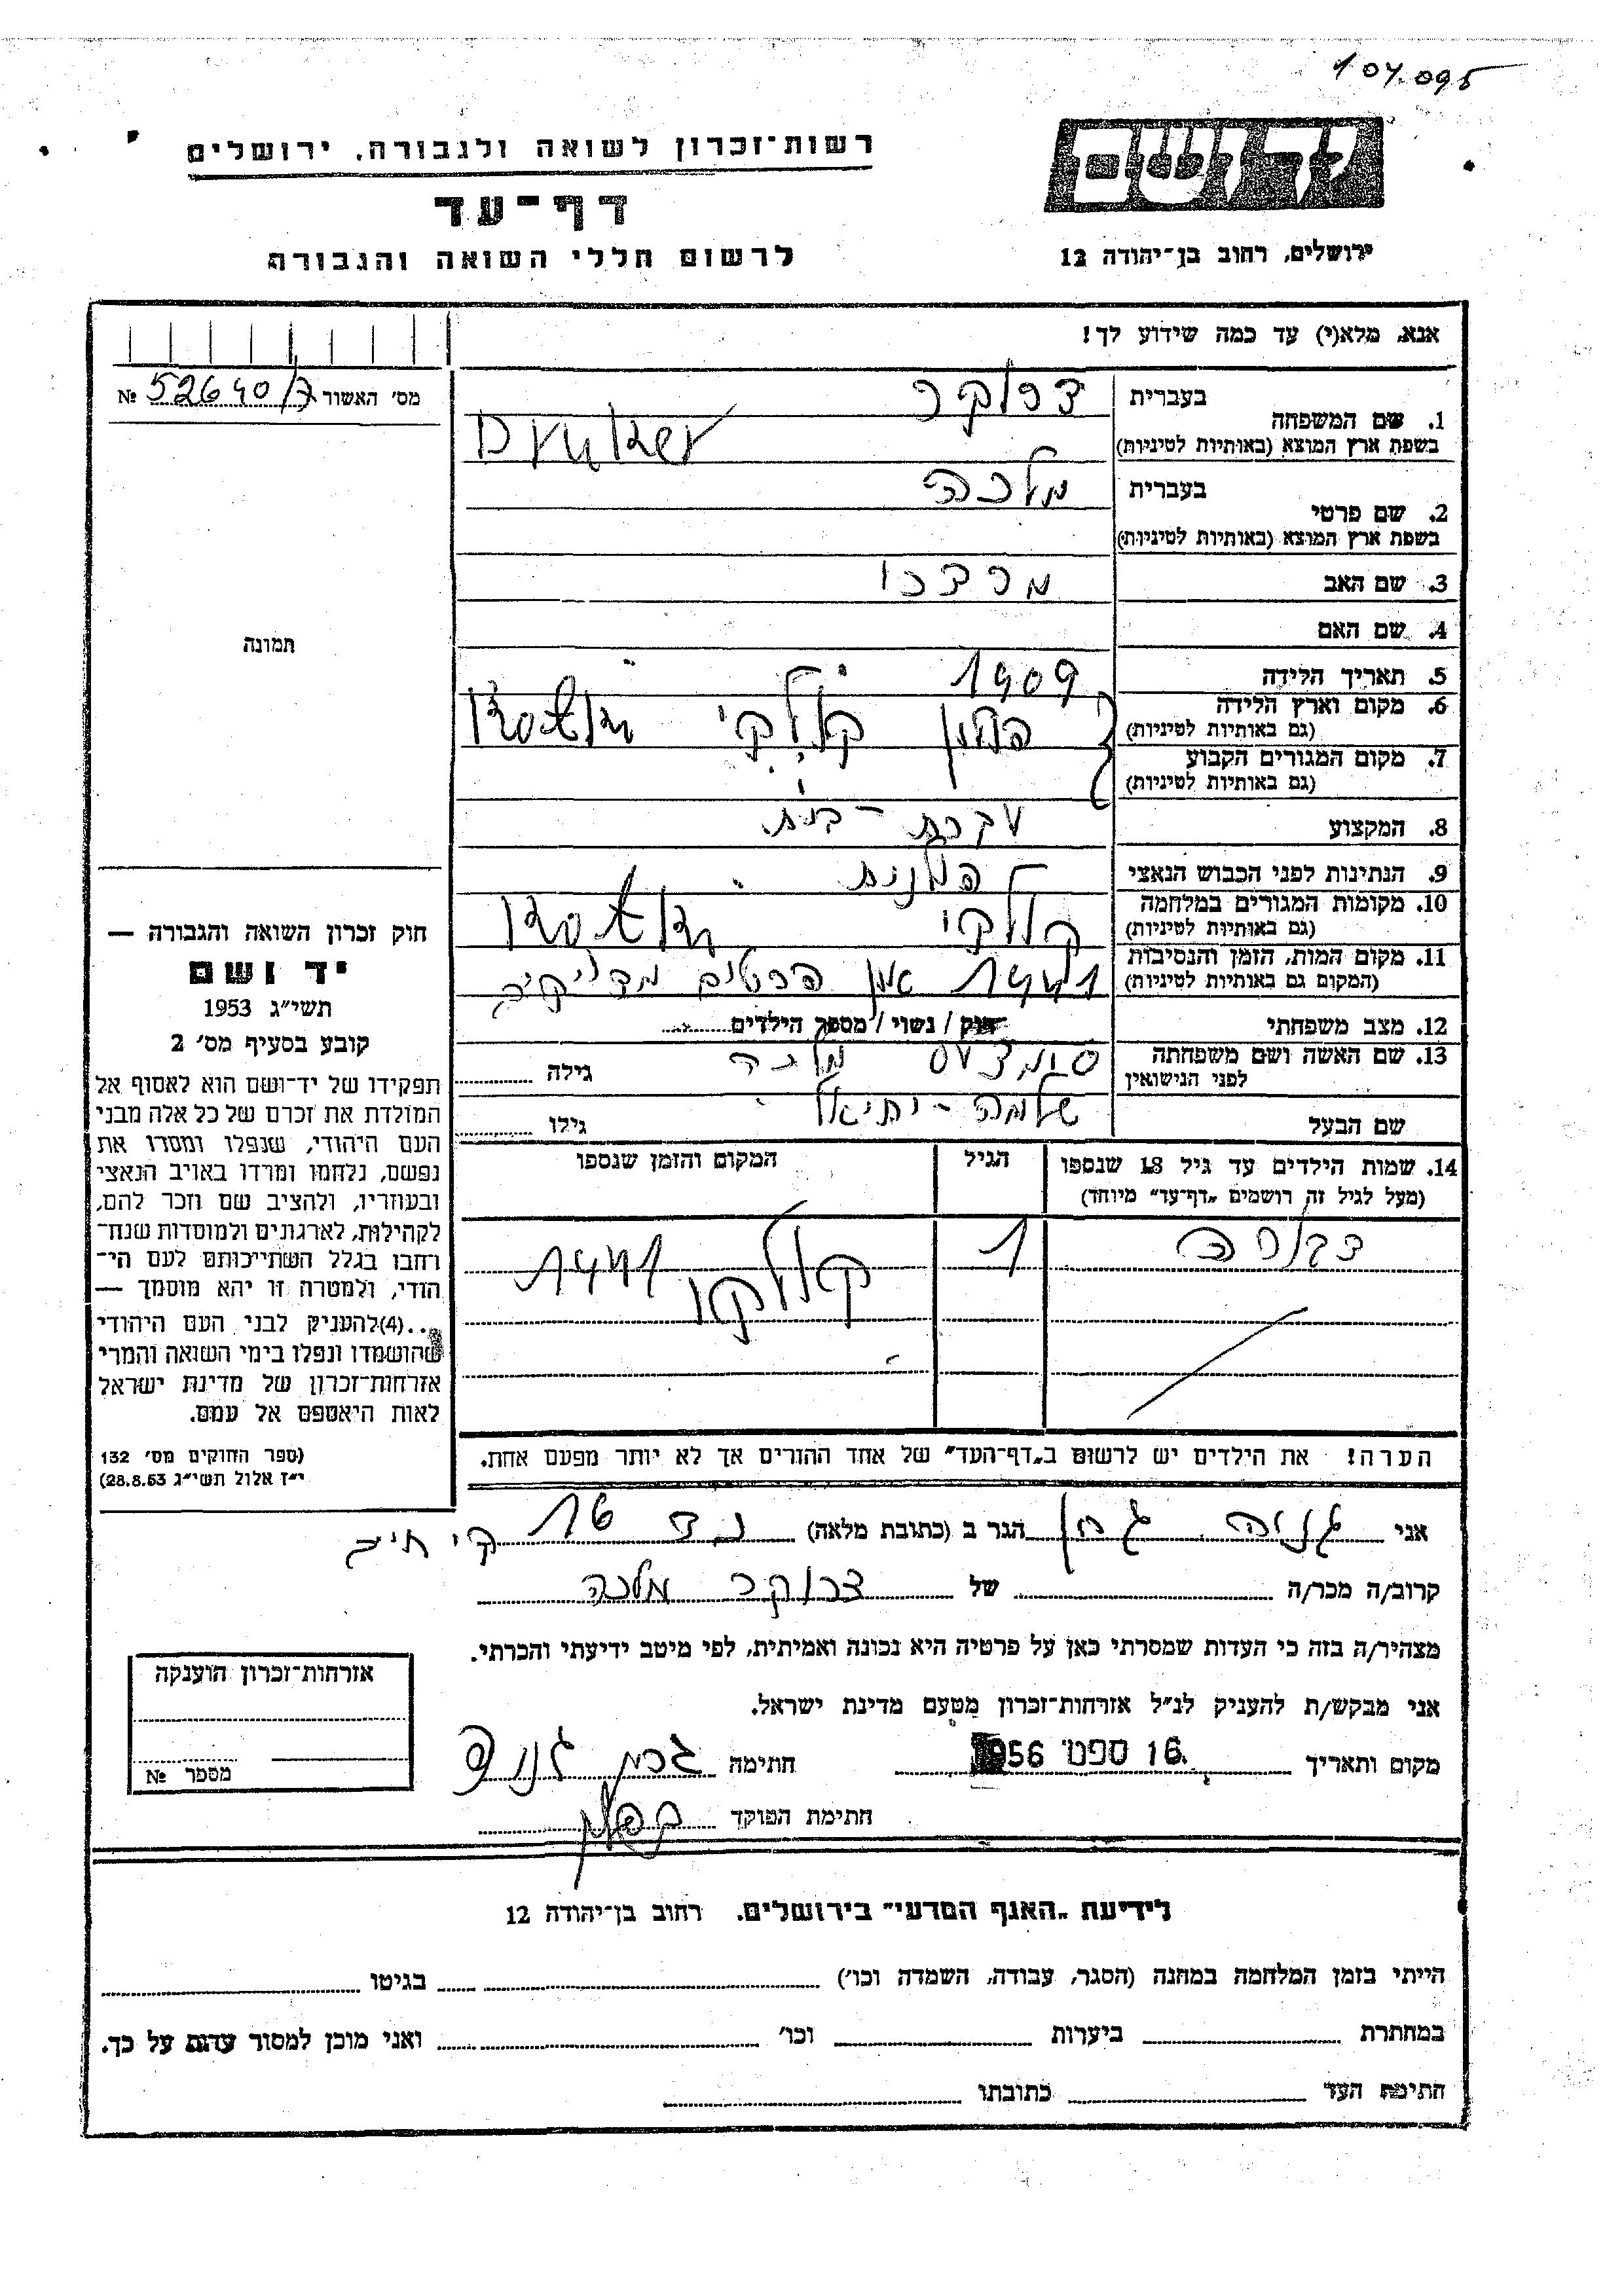 104.095
רשות־זכרון לשואה ולגבורה. ירושלים
דף־עד
לרשום חללי השואה והגבורה
יד ושם
ירושלים, רחוב בן־יהודה 12
אנא, מלא(י) עד כמה שידוע לך!
מס׳ האשור 52640/7 №
תמונה
1. שם המשפחה בעברית דרוקר
בשפת ארץ המוצא (באותיות לטיניות) Druker
2. שם פרטי בעברית מלכה
בשפת ארץ המוצא (באותיות לטיניות)
3. שם האב מרדכי
4. שם האם
5. תאריך הלידה 1909
6. מקום וארץ הלידה פולין
(גם באותיות לטיניות)
7. מקום המגורים הקבוע
(גם באותיות לטיניות)
8. המקצוע עקרת־בית
9. הנתינות לפני הכבוש הנאצי פולנית
10. מקומות המגורים במלחמה קולקי
(גם באותיות לטיניות)
11. מקום המות, הזמן והנסיבות 1941 אין פרטים מדויקים
(המקום גם באותיות לטיניות)
12. מצב משפחתי רווק / נשוי / מספר הילדים
13. שם האשה ושם משפחתה מלכה גילה
לפני הנישואין
שם הבעל שלמה־יחיאל גילו
14. שמות הילדים עד גיל 18 שנספו הגיל המקום והזמן שנספו
(מעל לגיל זה רושמים „דף־עד״ מיוחד)
דבורה 1 קולקי 1941
הערה! את הילדים יש לרשום ב„דף־העד״ של אחד ההורים אך לא יותר מפעם אחת.
חוק זכרון השואה והגבורה —
יד ושם
תשי״ג 1953
קובע בסעיף מס׳ 2
תפקידו של יד־ושם הוא לאסוף אל
המולדת את זכרם של כל אלה מבני
העם היהודי, שנפלו ומסרו את
נפשם, נלחמו ומרדו באויב הנאצי
ובעוזריו, ולהציב שם וזכר להם,
לקהילות, לארגונים ולמוסדות שנח־
רחבו בגלל השתייכותם לעם הי־
הודי, ולמטרה זו יהא מוסמך —
...(4)להעניק לבני העם היהודי
שהושמדו ונפלו בימי השואה והמרי
אזרחות־זכרון של מדינת ישראל
לאות היאספם אל עמם.
(ספר החוקים מס׳ 132
י״ז אלול תשי״ג 28.8.53)
אני גניה הגר ב (כתובת מלאה) 16
קרוב/ה מכר/ה של דרוקר מלכה
מצהיר/ה בזה כי העדות שמסרתי כאן על פרטיה היא נכונה ואמיתית, לפי מיטב ידיעתי והכרתי.
אני מבקש/ת להעניק לנ״ל אזרחות־זכרון מטעם מדינת ישראל.
מקום ותאריך 16. ספט 1956 חתימה
חתימת הפוקד
אזרחות־זכרון הוענקה
מספר №
לידיעת „האגף המדעי״ בירושלים. רחוב בן־יהודה 12
הייתי בזמן המלחמה במחנה (הסגר, עבודה, השמדה וכו׳) בגיטו
במחתרת ביערות וכו׳ ואני מוכן למסור עדות על כך.
חתימת העד כתובתו